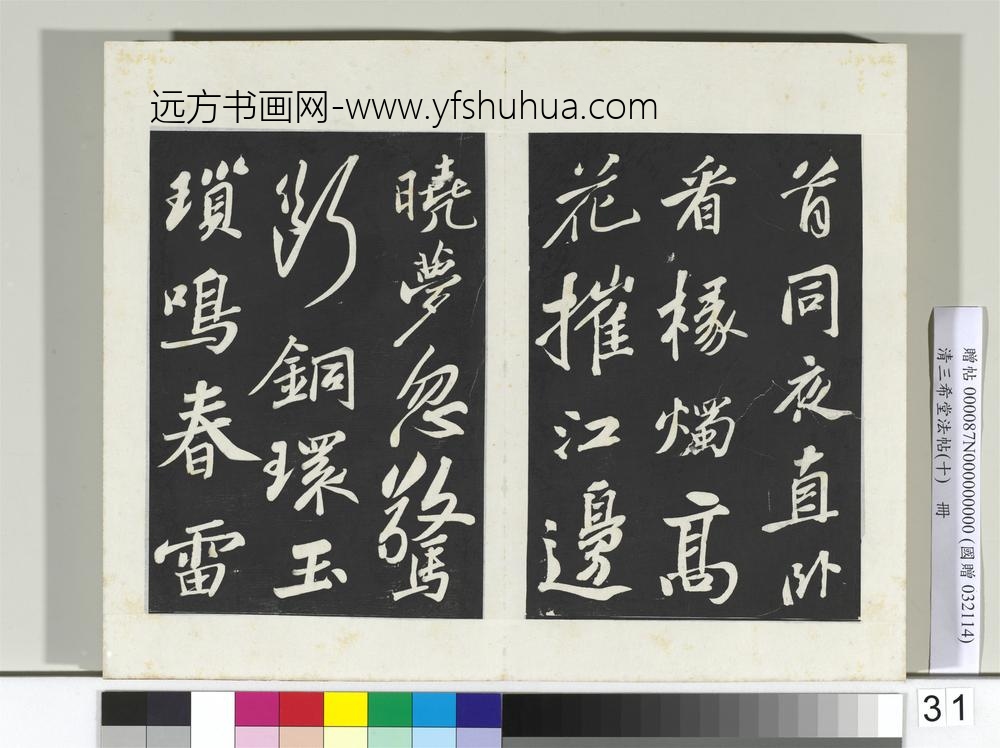 远方书画网-www.yfshuhua.com
首同夜直卧
看椽燭高
花摧江邊
曉夢忽驚
斷銅環玉
瑣鳴春雷
贈帖 000087N000000000 (國贈 032114)
清三希堂法帖(十) 冊
31